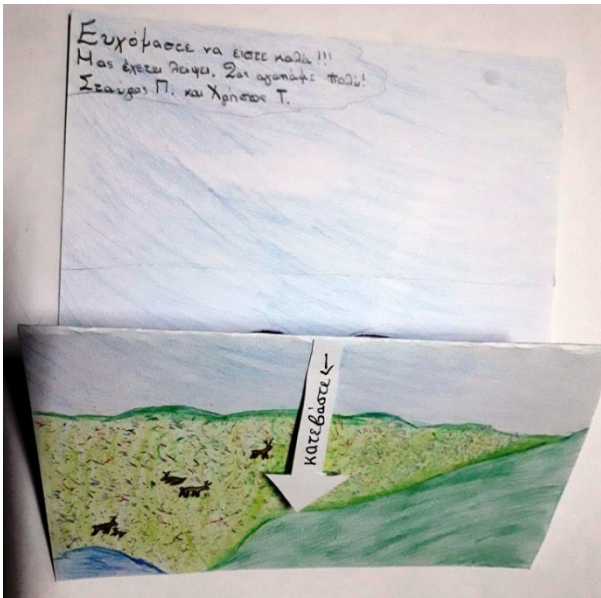 Ευχόμαστε να είστε καλά !!!
Μας έχετε λείψει. Σας αγαπάμε πολύ!
Σταύρος Π. και Χρήστος Τ.
κατεβάστε ←